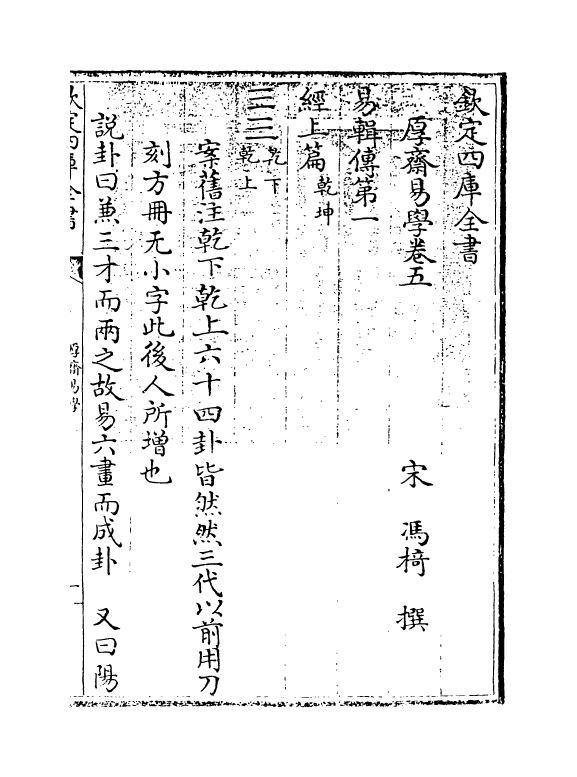 欽定四庫全書
厚齋易學卷五
宋 馮椅 撰
易輯傳第一
經上篇 乾坤
☰☰ 乾下 乾上
案舊注乾下乾上六十四卦皆然然三代以前用刀
刻方冊无小字此後人所增也
說卦曰兼三才而兩之故易六畫而成卦 又曰陽
欽定四庫全書
厚齋易學
一